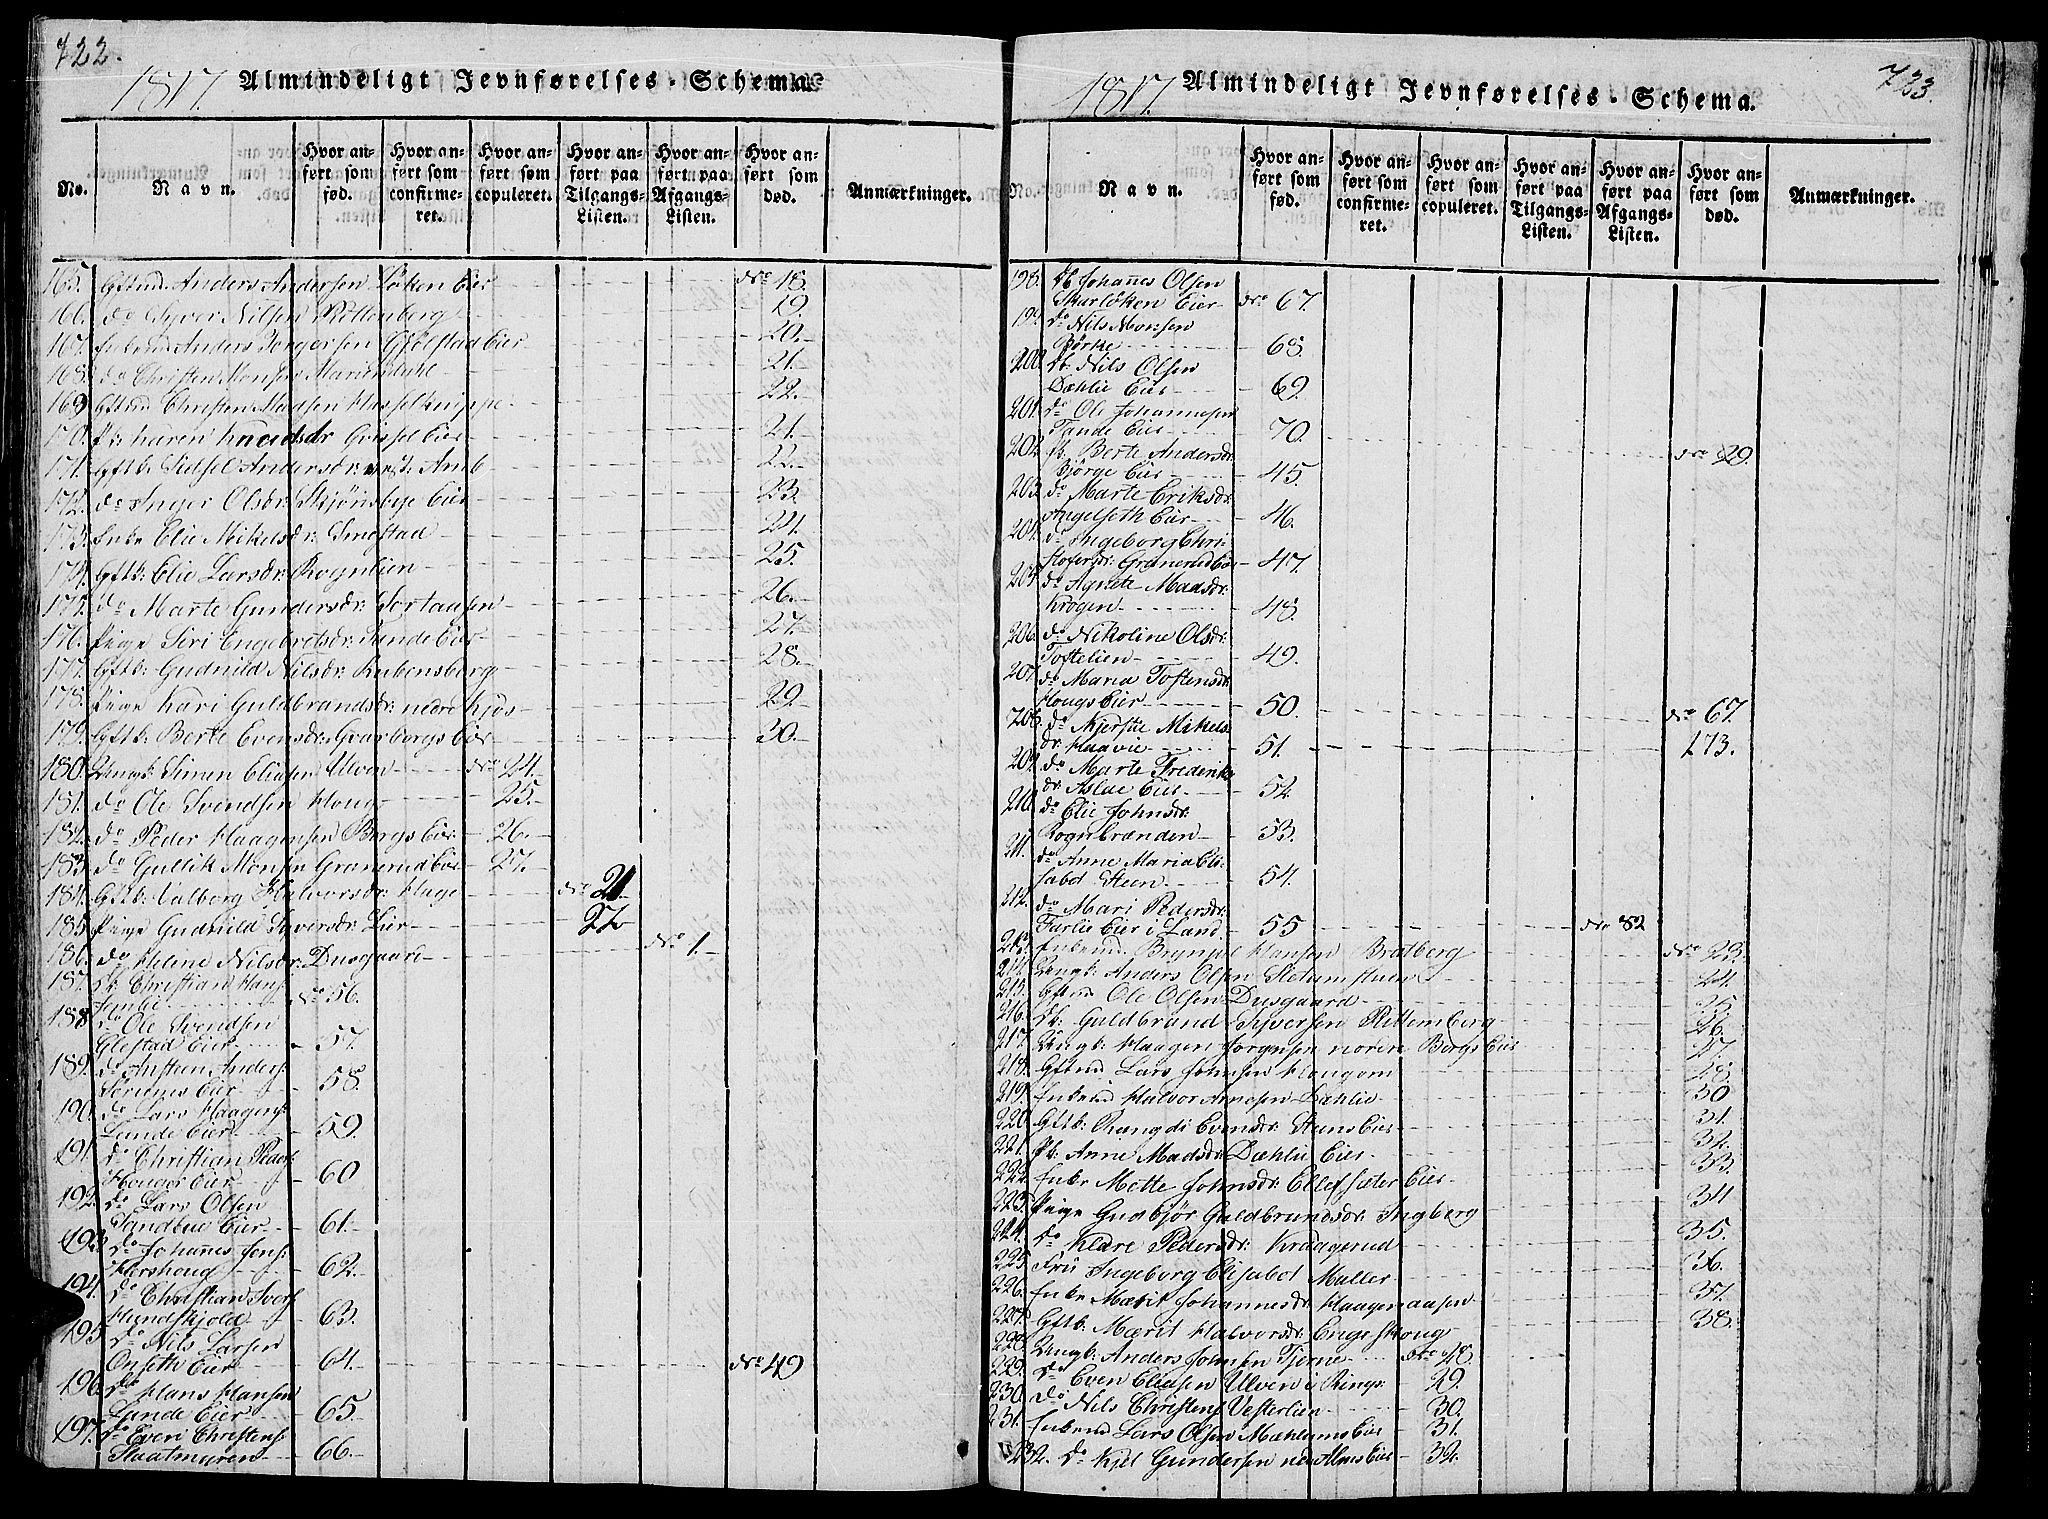 722.
1817. Almindeligt Jevnførelses-Schema.
No.
Navn.
Hvor anført som fød.
Hvor anført som confirmeret.
Hvor anført som copuleret.
Hvor anført paa Tilgangs-Listen.
Hvor anført paa Afgangs-Listen.
Hvor anført som død.
Anmærkninger.
165. Gftmd. Anders Andersen Løken Eier No 18.
166. do Syver Nilsen Rottenberg 19.
167. Enkemd Anders Jørgersen Gjølstad Eier 20.
168. do Christen Monsen Mariendahl 21.
169 Gftmd Christen Madsen Hasselknippe 22.
170. Pb: Karen Knudsdr Grissel Eier 21.
171. Gftk. Sidsel Andersdr: 22.
172. do Inger Olsdr: Skjønsbye Eier 23.
173. Enke Elie Mikelsdr: Smestad 24.
174. Gftk: Elie Larsdr: Rognlien 25.
175. do Marte Gundersdr: Sortausen 26.
176. Pige Siri Engebretsdr: Sande Eier 27.
177. Gftk: Gudnild Nilsdr: Rubensberg 28.
178. Pige Kari Guldbrandsdr: nedre Kjøs 29.
179. Gftk: Berte Evensdr: Gravborgs Eier 30.
180. Ungk: Simen Eliasen Ulven No 24.
181. do Ole Svendsen Houg 25.
182. do Peder Haagensen Bergs Eier 26.
183. do Gullik Monsen Granerud Eier 27.
184. Gftk: Valborg Halvorsdr: Hage No 21
185. Pige Gudhild Syversdr: Lier 22
186. do Helene Nilsdr: Dusgaard No 1.
187. Db: Christian Hans:
No 56.
188 do Ole Svendsen
Glestad Eier 57.
189. do Anstein Anders:
Sørumes Eier 58.
190. do Lars Haagens:
Lunde Eier 59.
191. do Christian Peder:
Houger Eier 60
192. do Lars Olsen
Sandbue Eier 61.
193. do Johannes Jens:
Hershoug 62.
194. do Christian Iver:
Hundskjold 63.
195. do Nils Larsen
Onseth Eier 64. No 49
196. do Hans Hansen
Lunde Eier 65.
197. do Even Christens:
Staatmyren 66.
723.
1817. Almindeligt Jevnførelses-Schema.
No.
Navn.
Hvor anført som fød.
Hvor anført som confirmeret.
Hvor anført som copuleret.
Hvor anført paa Tilgangs-Listen.
Hvor anført paa Afgangs-Listen.
Hvor anført som død.
Anmærkninger.
198. Db Johannes Olsen
Skarløken Eier No 67.
199. do Nils Monsen
Børke 68.
200. Db: Nils Olsen
Dæhlie Eier 69.
201. do Ole Johannesen
Tande Eier 70.
202. Pb. Berte Andersdr: No 29.
Bjørge Eier 45.
203. do Marte Eriksdr:
Angelseth Eier 46.
204. do Ingeborg Chri-
stofersdr: Granerud Eier 47.
205. do Agnete Madsdr:
Krogen 48.
206. do Nikoline Olsdr:
Tostelien 49.
207. do Maria Tostensdr:
Hougs Eier 50. No 67.
208. do Kjerstie Mikels
dr: Haavie 51. 173.
209. do Marte Frederiks
dr: Aslae Eier 52.
210. do Elie Johnsdr:
Rognbrænden 53.
211. do Anne Maria Eli-
sabet Steen 54.
212. do Mari Pedersdr:
Farlie Eier i Land 55 No 82
213. Enkemd Brynjel Hansen Bratberg No 23.
214. Ungk: Anders Olsen 24.
215. Gftmd Ole Olsen Dusgaard 25.
216. Db. Guldbrand Syversen Rottemberg 26.
217. Ungk: Haagen Jørgensen nordre Bergs Eier 27.
218. Gftmd Lars Johnsen Hougom 28.
219. Enkemd Halvor Arnesen Dæhlie 30
220. Gftk: Rangdi Evensdr: Stens Eier 31.
221. Pb. Anne Madsdr: Dæhlie Eier 32.
222. Enke Mette Johnsdr: Ellefsæter Eier 33.
223. Pige Gudbjør Guldbrandsdr: Ingberg 34
224. do Kldre Pedersdr: Kraagerud 35.
225. Frü Ingeborg Elisabet Muller 36.
226. Enke Mærit Johannesdr: Haagenaasen 37.
227. Gftk: Mærit Halvorsdr: Engeshoug 38.
228. Ungk: Anders Johnsen Tjerne No 28.
229. do Even Eliasen Ulven i Rings: 29.
230. do Nils Christens: Vesterlien 30.
231. Enkemd Lars Olsen Mæhlums Eier 31.
232. do Kjel Gundersen ned: Alms Eier 32.